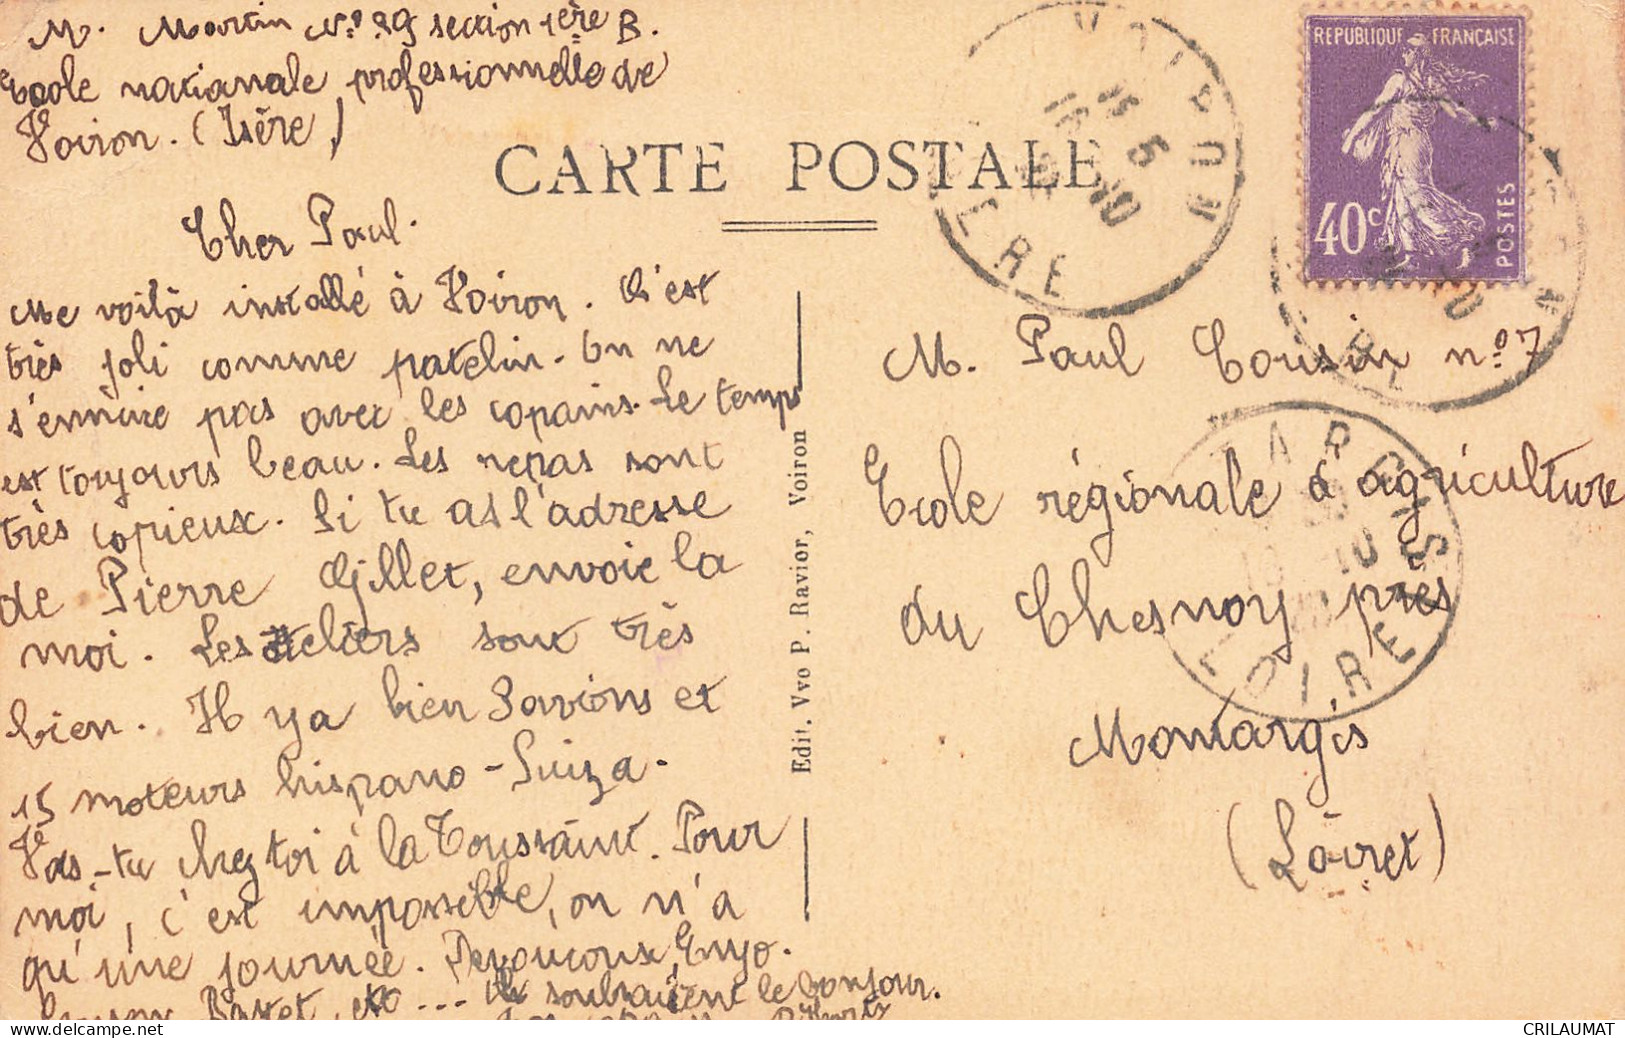 M. Martin N° 29 section 1ère B.
Ecole nationale professionnelle de
Voiron. (Isère)
Cher Paul.
Me voilà installé à Voiron. C'est
très joli comme patelin. On ne
s'ennuie pas avec les copains. Le temps
est toujours beau. Les repas sont
très copieux. Si tu as l'adresse
de Pierre Gillet, envoie la
moi. Les ateliers sont très
bien. Il y a bien 3 avions et
15 moteurs hispano-Suiza.
Vas-tu chez toi à la Toussaint. Pour
moi, c'est impossible, on n'a
qu'une journée.
... souhaitent le bonjour.
CARTE POSTALE
Edit. Vve P. Ravior, Voiron
REPUBLIQUE FRANÇAISE
40c
POSTES
VOIRON
ISERE
M. Paul Cousin n° 7
Ecole régionale d'agriculture
du Chesnoy près
Montargis
(Loiret)
MONTARGIS
LOIRET
delcampe.net
CRILAUMAT